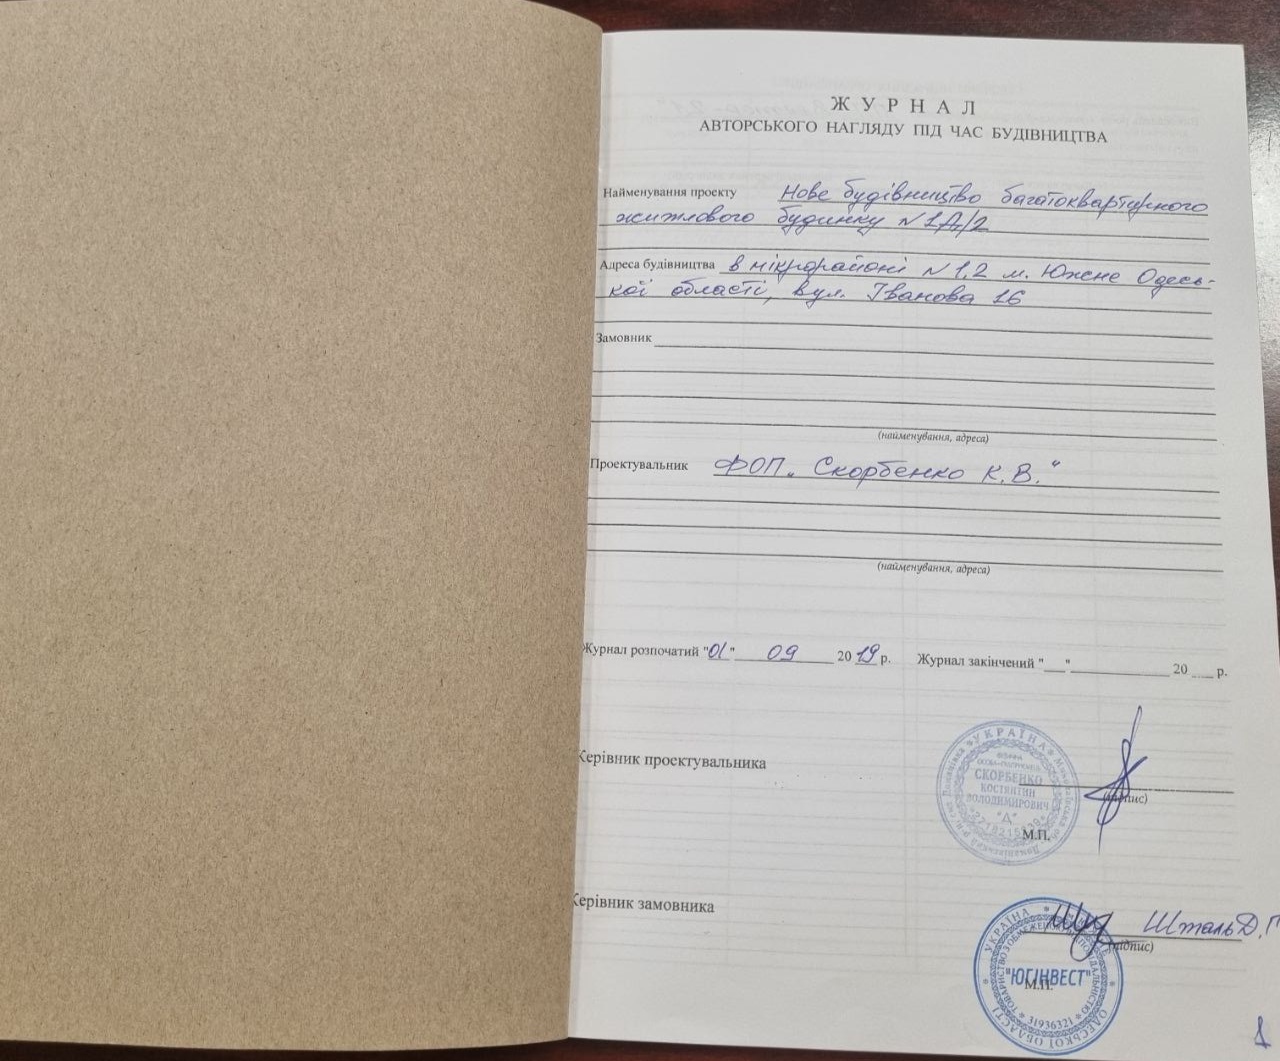 ЖУРНАЛ
АВТОРСЬКОГО НАГЛЯДУ ПІД ЧАС БУДІВНИЦТВА
Найменування проекту Нове будівництво багатоквартирного
житлового будинку №1Д/2
Адреса будівництва в мікрорайоні №1,2 м. Южне Одесь-
кої області, вул. Іванова 16
Замовник
(найменування, адреса)
Проектувальник ФОП „Скорбенко К.В.“
(найменування, адреса)
Журнал розпочатий "01" 09 2019 р. Журнал закінчений "__" 20__ р.
Керівник проектувальника
УКРАЇНА
СКОРБЕНКО
КОСТЯНТИН
ВОЛОДИМИРОВИЧ
"Д"
(підпис)
М.П.
Керівник замовника
Шталь Д.Г
(підпис)
УКРАЇНА
ТОВАРИСТВО З ОБМЕЖЕНОЮ ВІДПОВІДАЛЬНІСТЮ
"ЮГІНВЕСТ"
М.П.
31936321
ОДЕСЬКОЇ ОБЛАСТІ